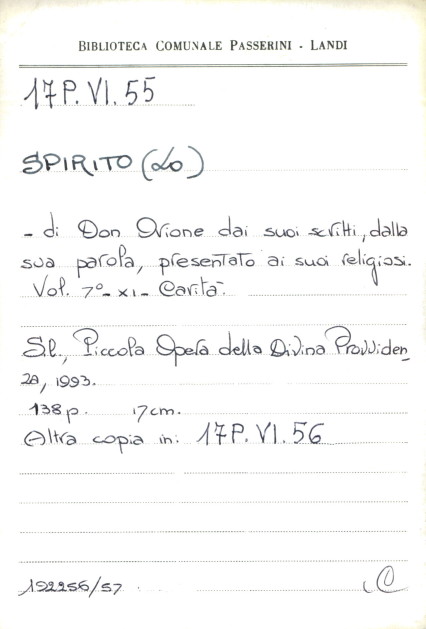 BIBLIOTECA COMUNALE PASSERINI - LANDI
17P. VI. 55
SPIRITO (Lo)
- di Don Orione dai suoi scritti, dalla
sua parola, presentato ai suoi religiosi.
Vol. 7º - XI - Carità.
S.l., Piccola Opera della Divina Provviden
za, 1993.
138 p. 17 cm.
Altra copia in: 17P. VI. 56
192256/57